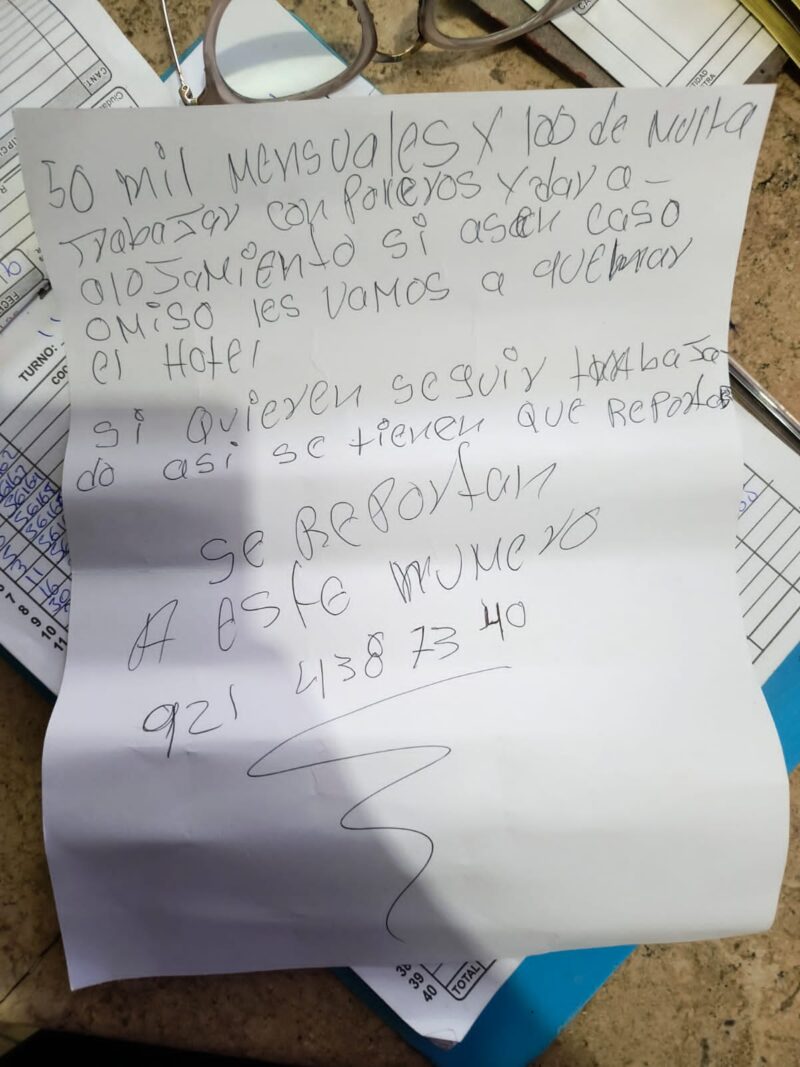 50 mil mensuales y 100 de multa
trabajar con Poneros y dar a-
alojamiento si asen caso
omiso les vamos a quemar
el Hotel
si quieren seguir trabaja-
do asi se tienen que Reportar
se Reportan
A este numero
921 438 73 40
CANT.
TURNO:
7
8
9
10
11
38
39
40
TOTAL